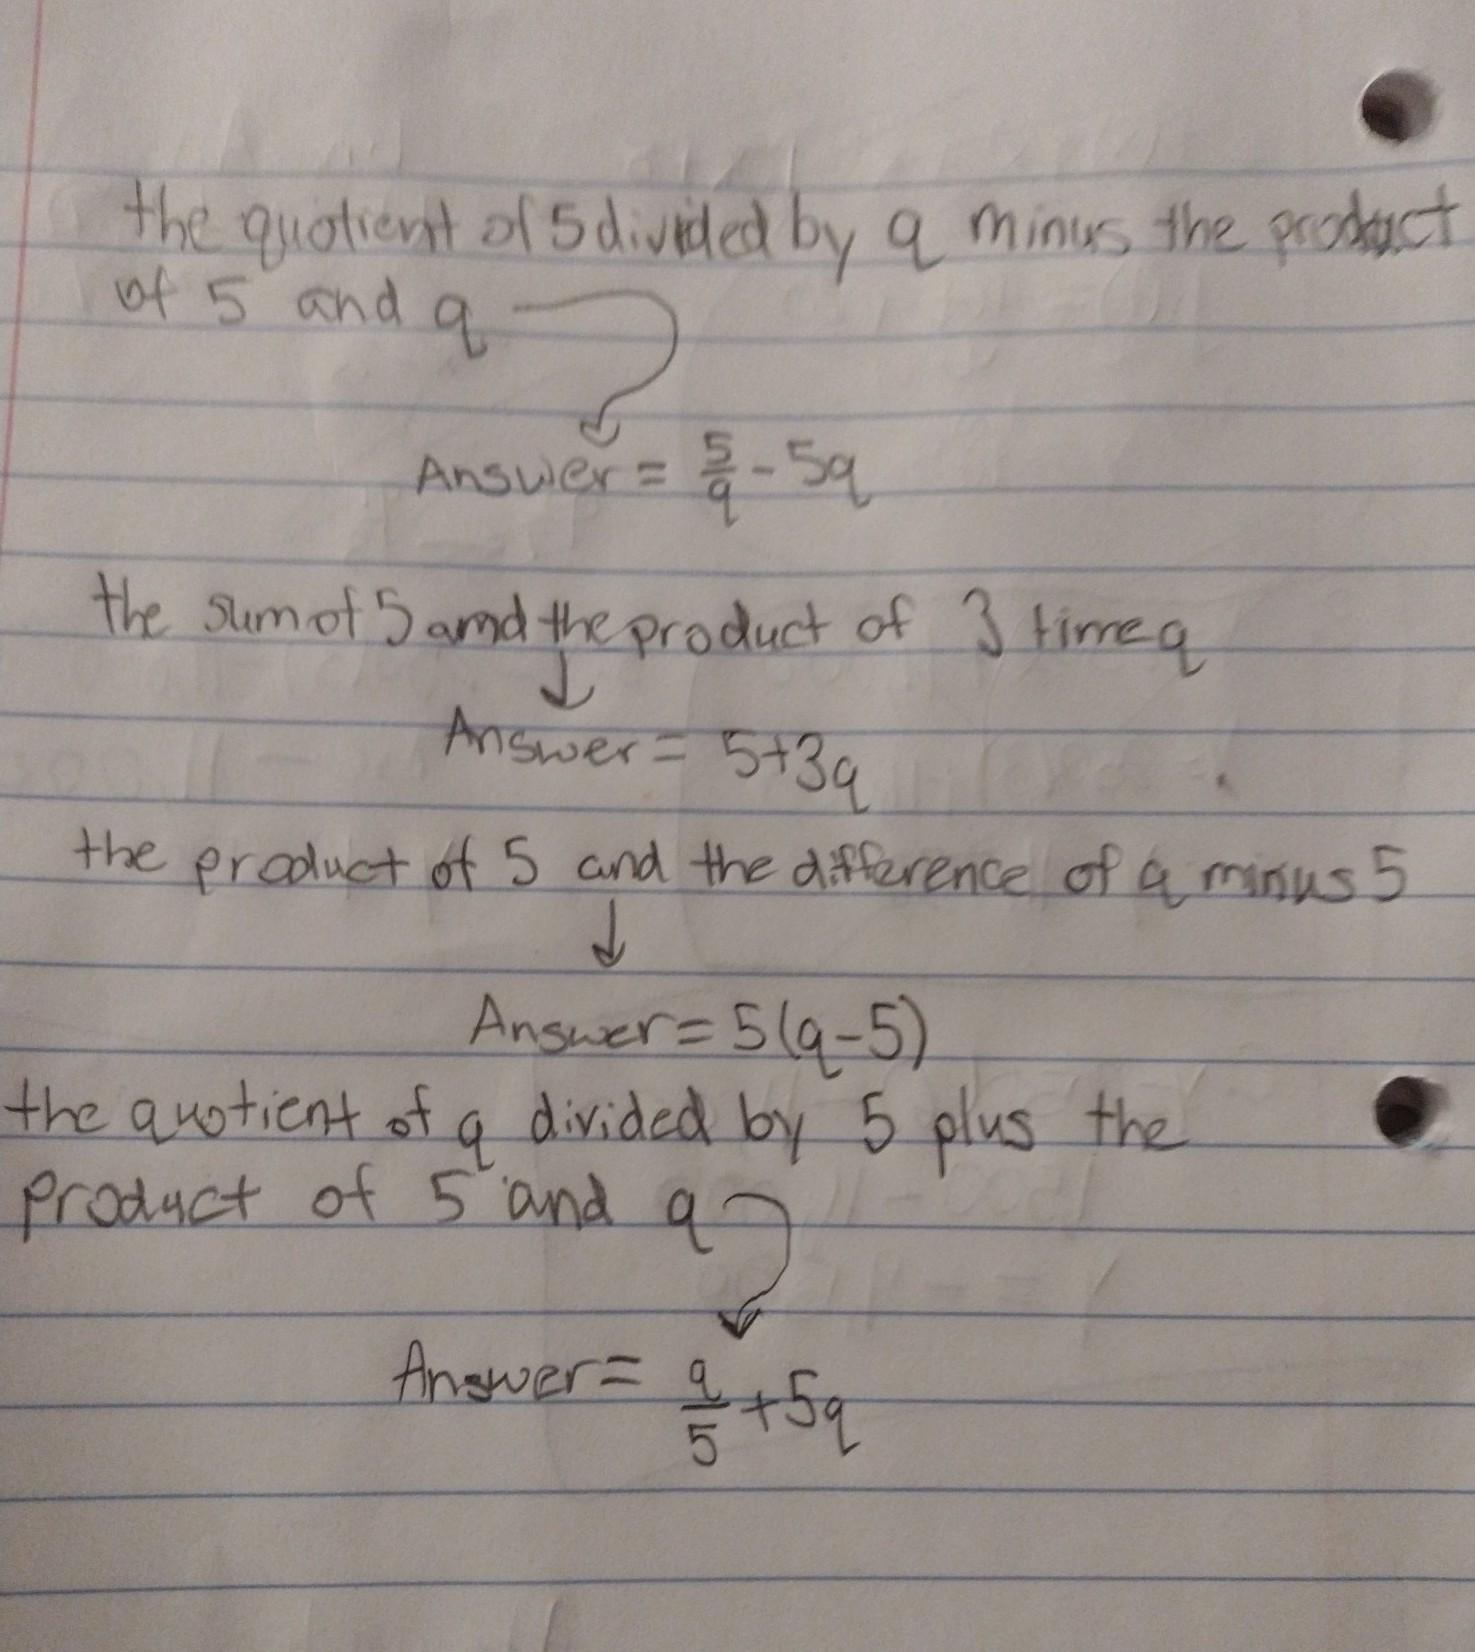 the quotient of 5 divided by q minus the product
of 5 and q
Answer = 5/q - 5q
the sum of 5 amd the product of 3 time q
Answer = 5+3q
the product of 5 and the difference of q minus 5
Answer = 5(q-5)
the quotient of q divided by 5 plus the
product of 5 and q
Answer = q/5 + 5q